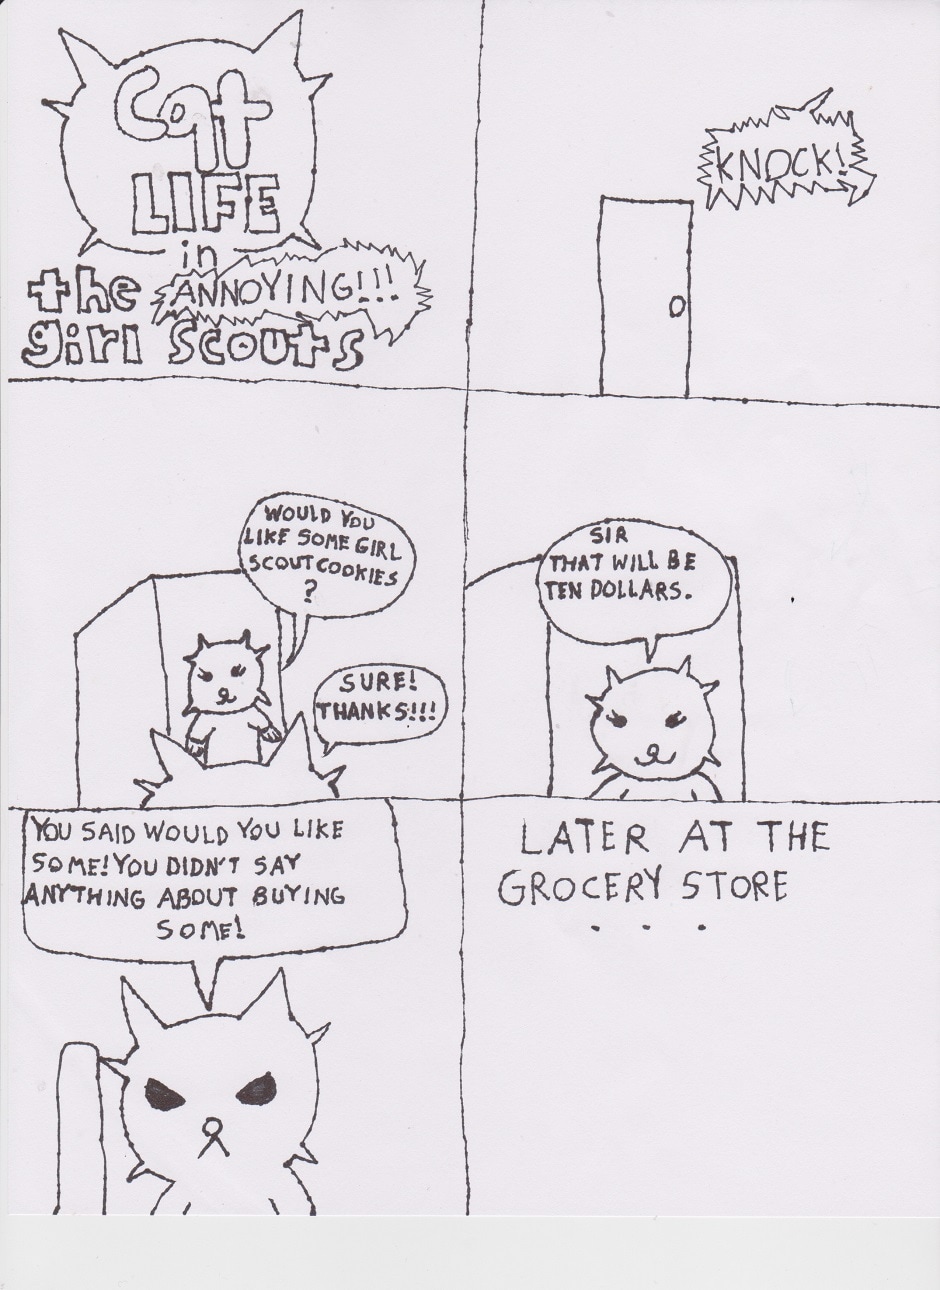 Cat
LIFE
in
the ANNOYING!!!
girl Scouts
KNOCK!
WOULD YOU
LIKE SOME GIRL
SCOUT COOKIES
?
SURE!
THANKS!!!
SIR
THAT WILL BE
TEN DOLLARS.
YOU SAID WOULD YOU LIKE
SOME! YOU DIDN'T SAY
ANYTHING ABOUT BUYING
SOME!
LATER AT THE
GROCERY STORE
. . .